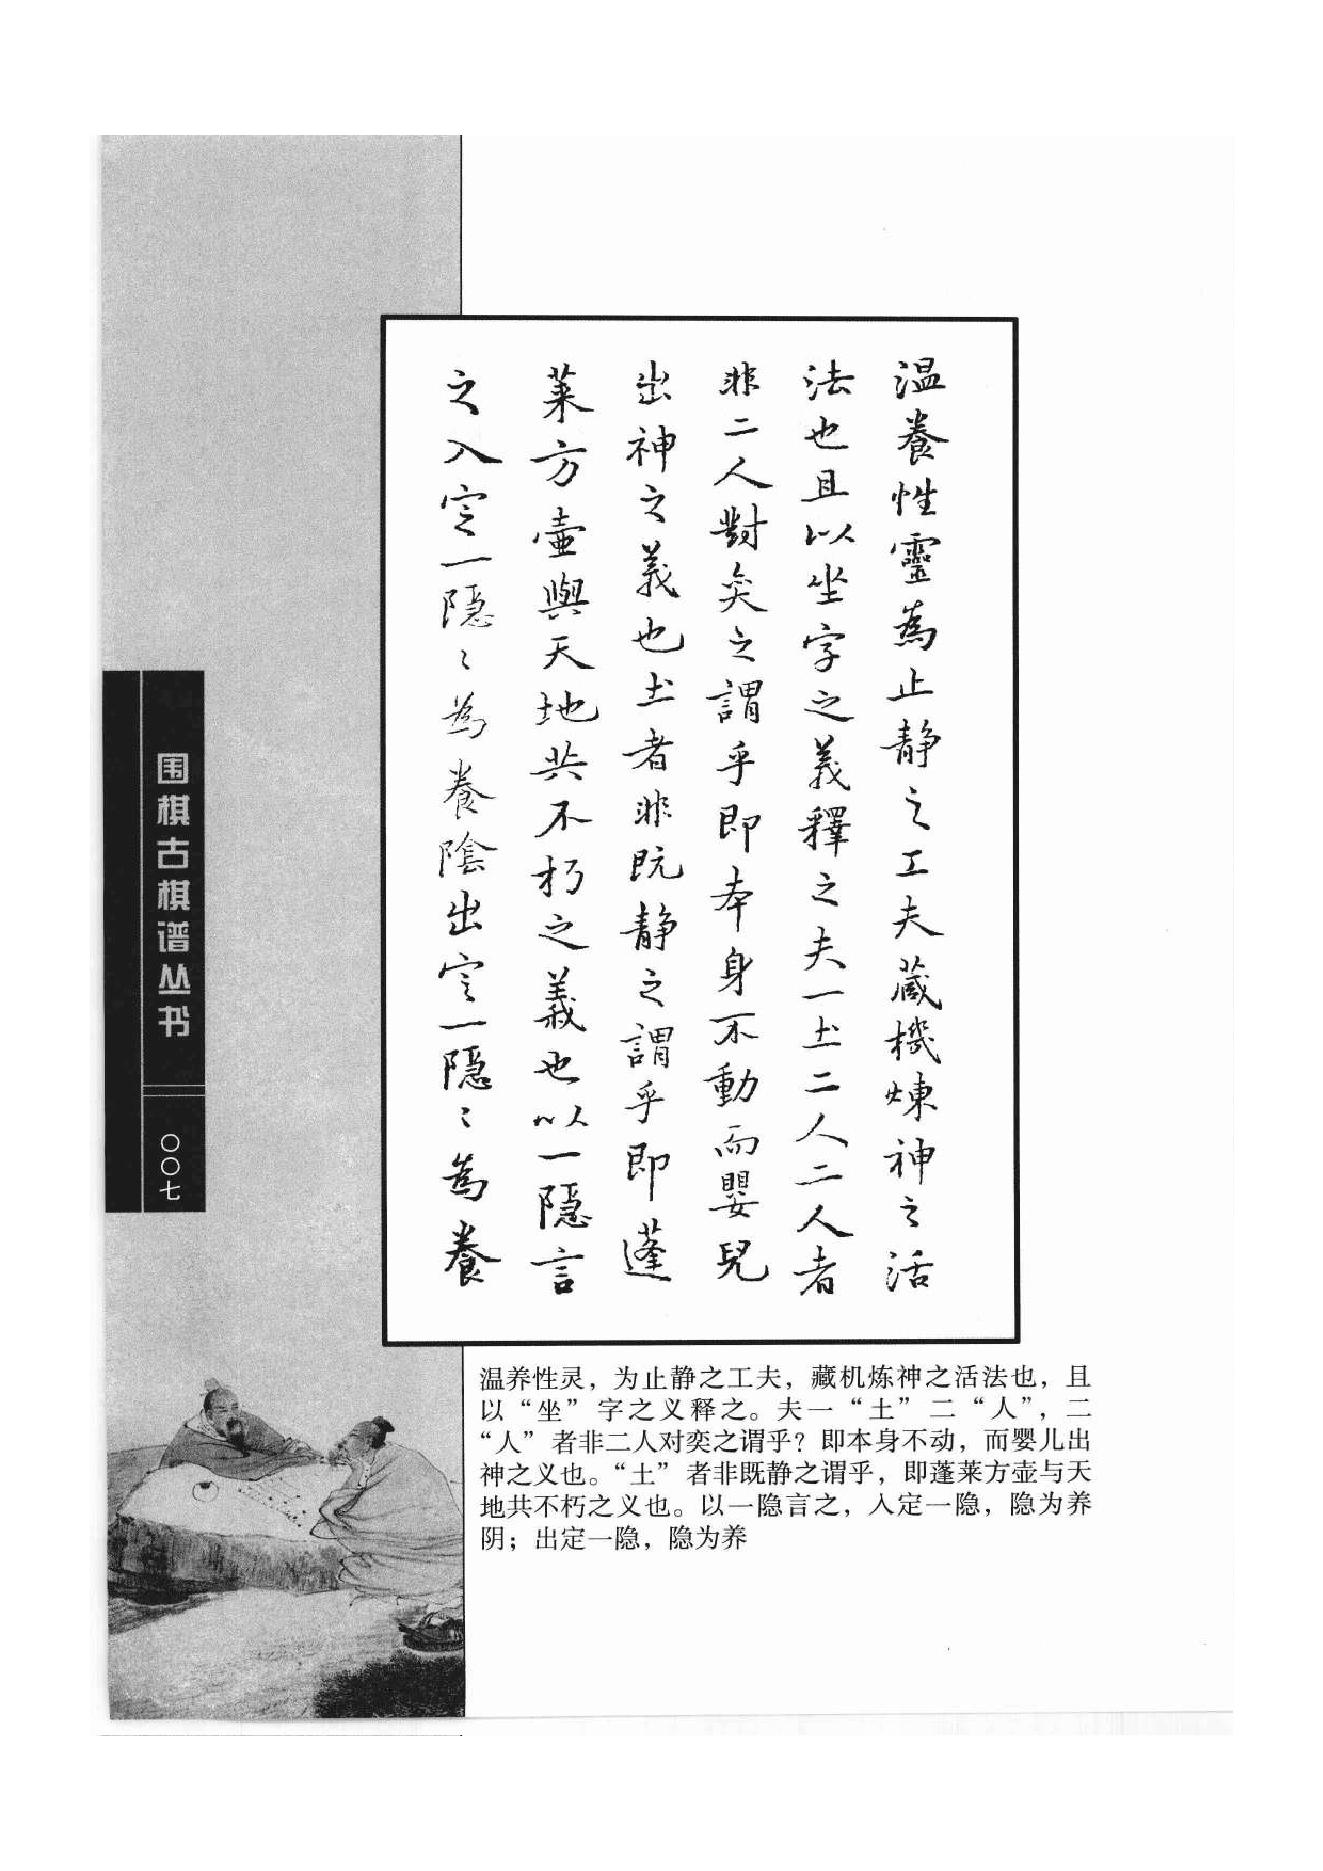 温養性靈為止静之工夫藏機煉神之活
法也且以坐字之義釋之夫一土二人二人者
非二人對奕之謂乎即本身不動而嬰兒
出神之義也土者非既静之謂乎即蓬
萊方壷與天地共不朽之義也以一隱言
之入定一隱〻為養陰出定一隱〻為養
围棋古棋谱丛书
〇〇七
温养性灵，为止静之工夫，藏机炼神之活法也，且
以“坐”字之义释之。夫一“土”二“人”，二
“人”者非二人对奕之谓乎？即本身不动，而婴儿出
神之义也。“土”者非既静之谓乎，即蓬莱方壶与天
地共不朽之义也。以一隐言之，入定一隐，隐为养
阴；出定一隐，隐为养